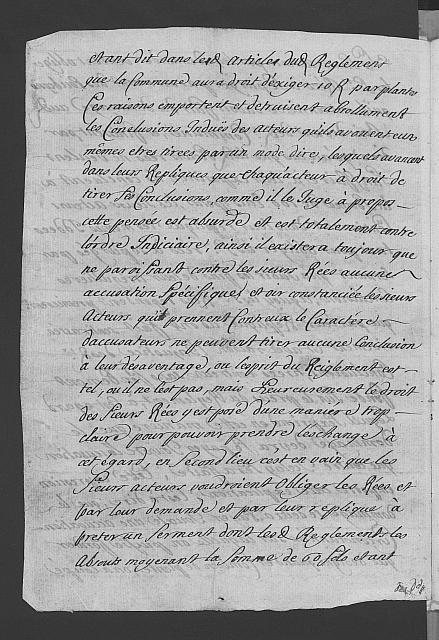 etant dit dans lesd. articles dud. Reglement
que la Commune aura droit d'exiger 10 ß par plante
Ces raisons emportent et detruisent absolument
les Conclusions Induës des acteurs quils avouent eux
mêmes etres tirées par un mode dire, lesquels avancant
dans leurs Repliques que chaqu'acteur à droit de
tirer Ses Conclusions, comme il le Juge à propos
cette pensée est absurde et est totalement contre
l'ordre Judiciaire, ainsi il existera toujour que
ne paroissant contre les sieurs Rées aucune
accusation Specifique et cir constanciée les sieurs
Acteurs qui prennent Contr'eux le Caractére
d'accusateurs ne peuvent tirer aucune Conclusion
à leur desaventage, ou l'esprit du Reiglement est
tel, ou il ne l'est pas, mais heureusement le droit
des Sieurs Rées y est posé d'une maniere trop
claire pour pouvoir prendre leschange à
cet égard, en Second lieu c'est en vain que les
Sieurs acteurs voudroient Obliger les Rées et
par leur demande et par leur replique à
préter un Serment dont lesd. Reglements les
Absouts moyenant la Somme de 60 sols etant